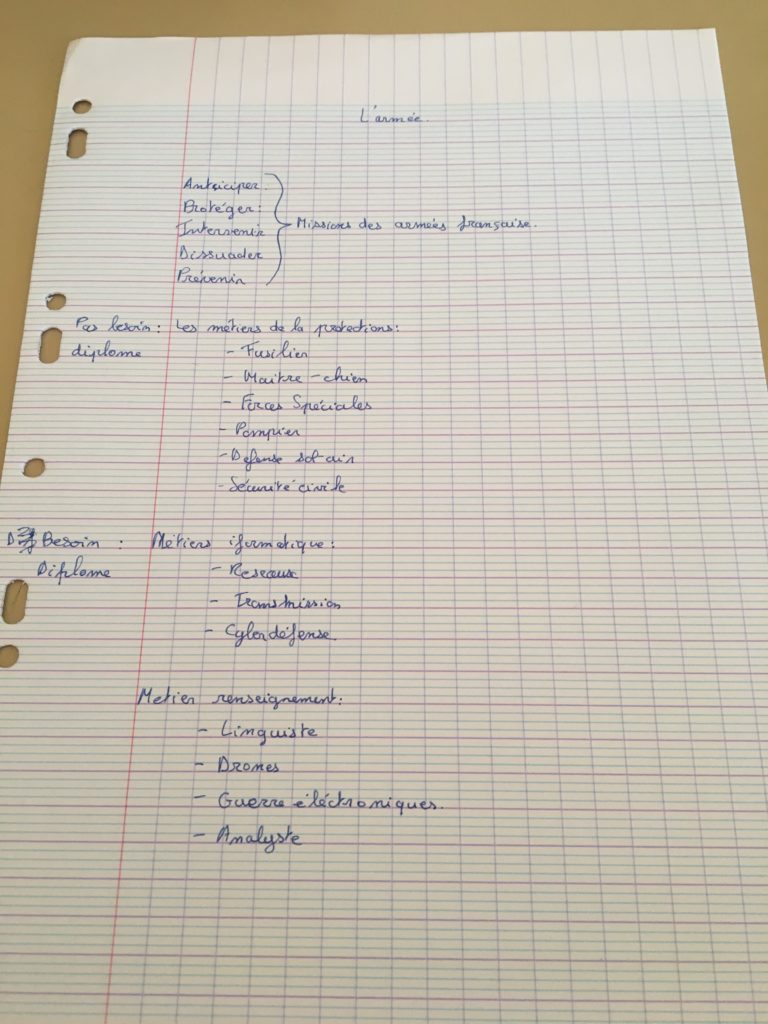 L'armée.
Anticiper.
Protéger:
Intervenir
Missions des armées française.
Dissuader
Prévenir
Pas besoin : Les métiers de la protections:
diplome
- Fusilier
- Maitre-chien
- Forces Spéciales
- Pompier
- Défense sol-air
- Sécurité civile
Besoin : Métiers iformatique:
Diplome
- Reseaux
- Transmission
- Cyberdéfense.
Metier renseignement:
- Linguiste
- Drones
- Guerre éléctroniques.
- Analyste